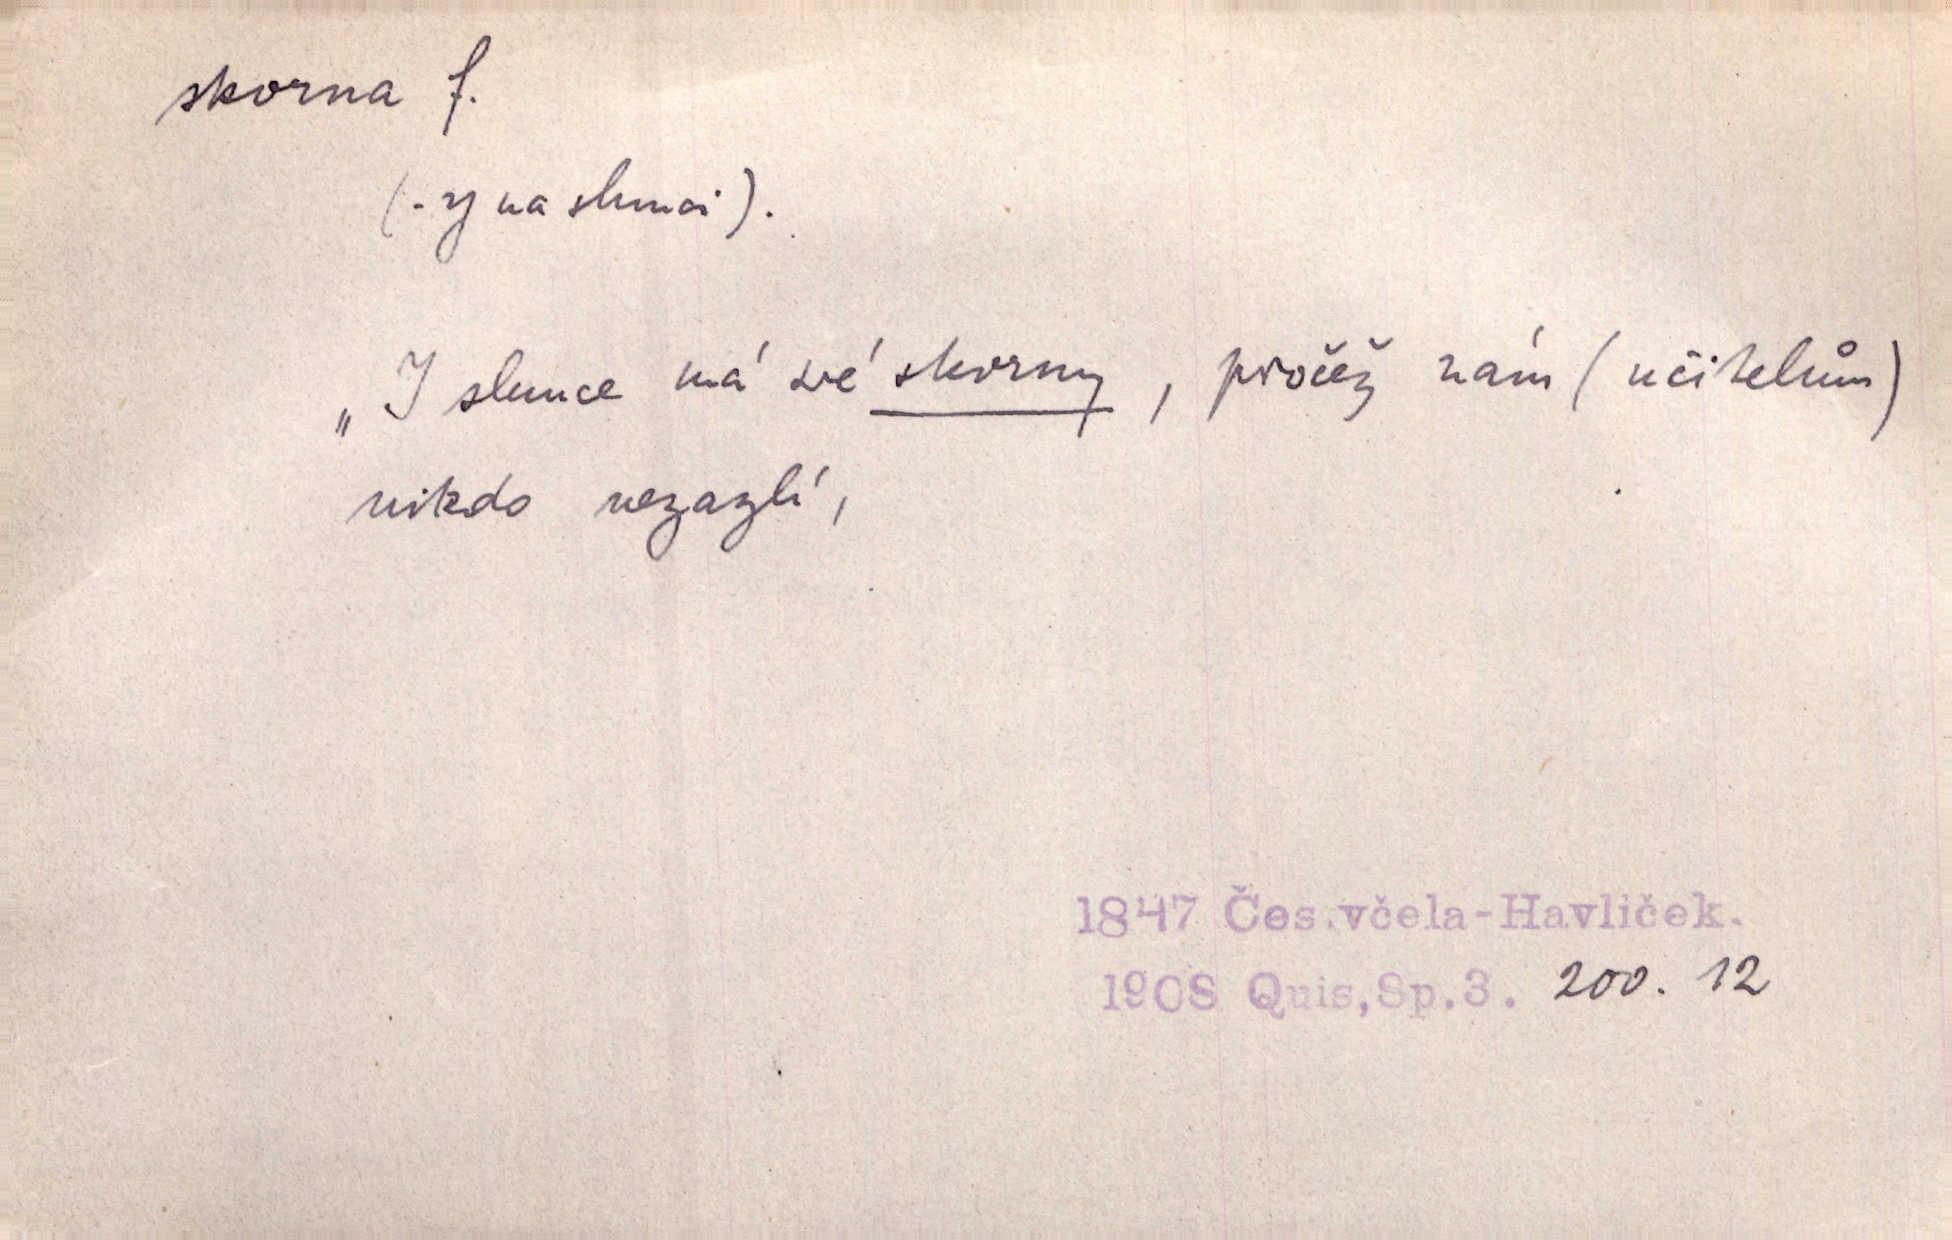 skorna f.
(-y na slunci).
„I slunce má své skorny, pročež nám (učitelům)
nikdo nezazlí,
1847 Čes.včela-Havlíček.
1908 Quis,Sp.3. 200. 12